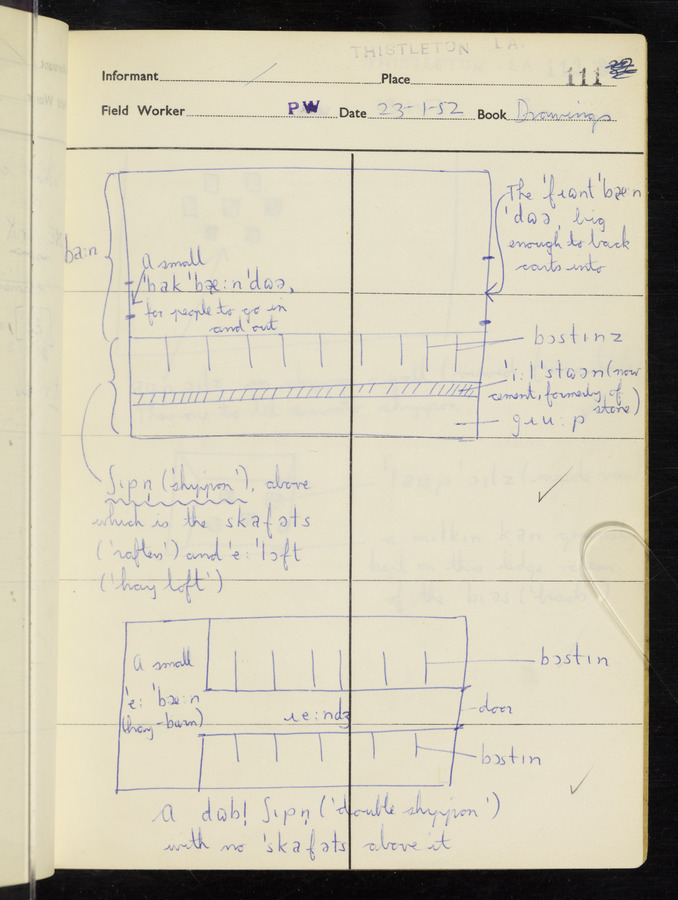 THISTLETON LA.
Informant / Place 111
Field Worker PW Date 23-1-52 Book Drawings
The ˈfɹɒnt ˈbæːn
ˈdɒə, big
enough to back
carts into
ba:n
A small
ˈbak ˈbæːnˈdɒə,
for people to go in
and out
bɔstinz
ˈiːlˈstɒən (now
cement, formerly of
stone)
gɹuːp
ʃɪpn̩ ('shyippon'), above
which is the skafəts
('rafters') and ˈeːˈlɔft
('hay loft')
A small
ˈeːˈbæːn
(hay-barn)
bɔstin
ɹeːndʒ
door
bɔstin
A dɒbl̩ ʃɪpn̩ ('double shyippon')
with no ˈskafəts above it